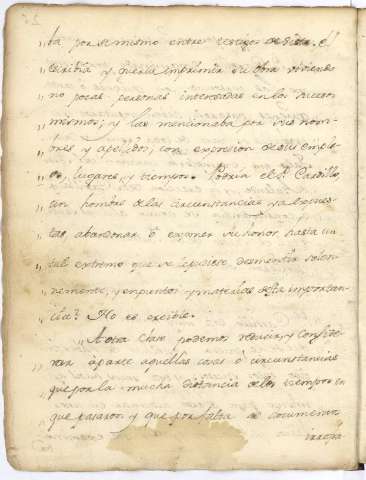 „ ta por si mismo entre testigos de vista. el
„ escribia y queria imprimir su obra viviendo
„ no pocas personas interesadas en los sucesos
„ mismos; y las mencionaba por sus nom-
„ bres y apellidos, con expresion de sus emple-
„ os, lugares, y tiempos. Podria el P. Castillo,
„ un hombre de las circunstancias ya expues-
„ tas abandonar ó exponer su honor hasta un
„ tal extremo que se pudiese desmentir solem-
„ nemente, y en puntos y materias de esta importan-
„ cia? No es creible.
„ A otra Clase podemos reducir, y conside-
„ rar aparte aquellas cosas ó circunstancias
que por la mucha distancia de los tiempos en
que pasaron, y que por falta de documentos